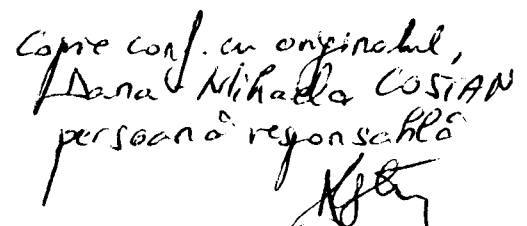 Copie conf. cu originalul,
Dana Mihaela COSTAN
persoană responsabilă